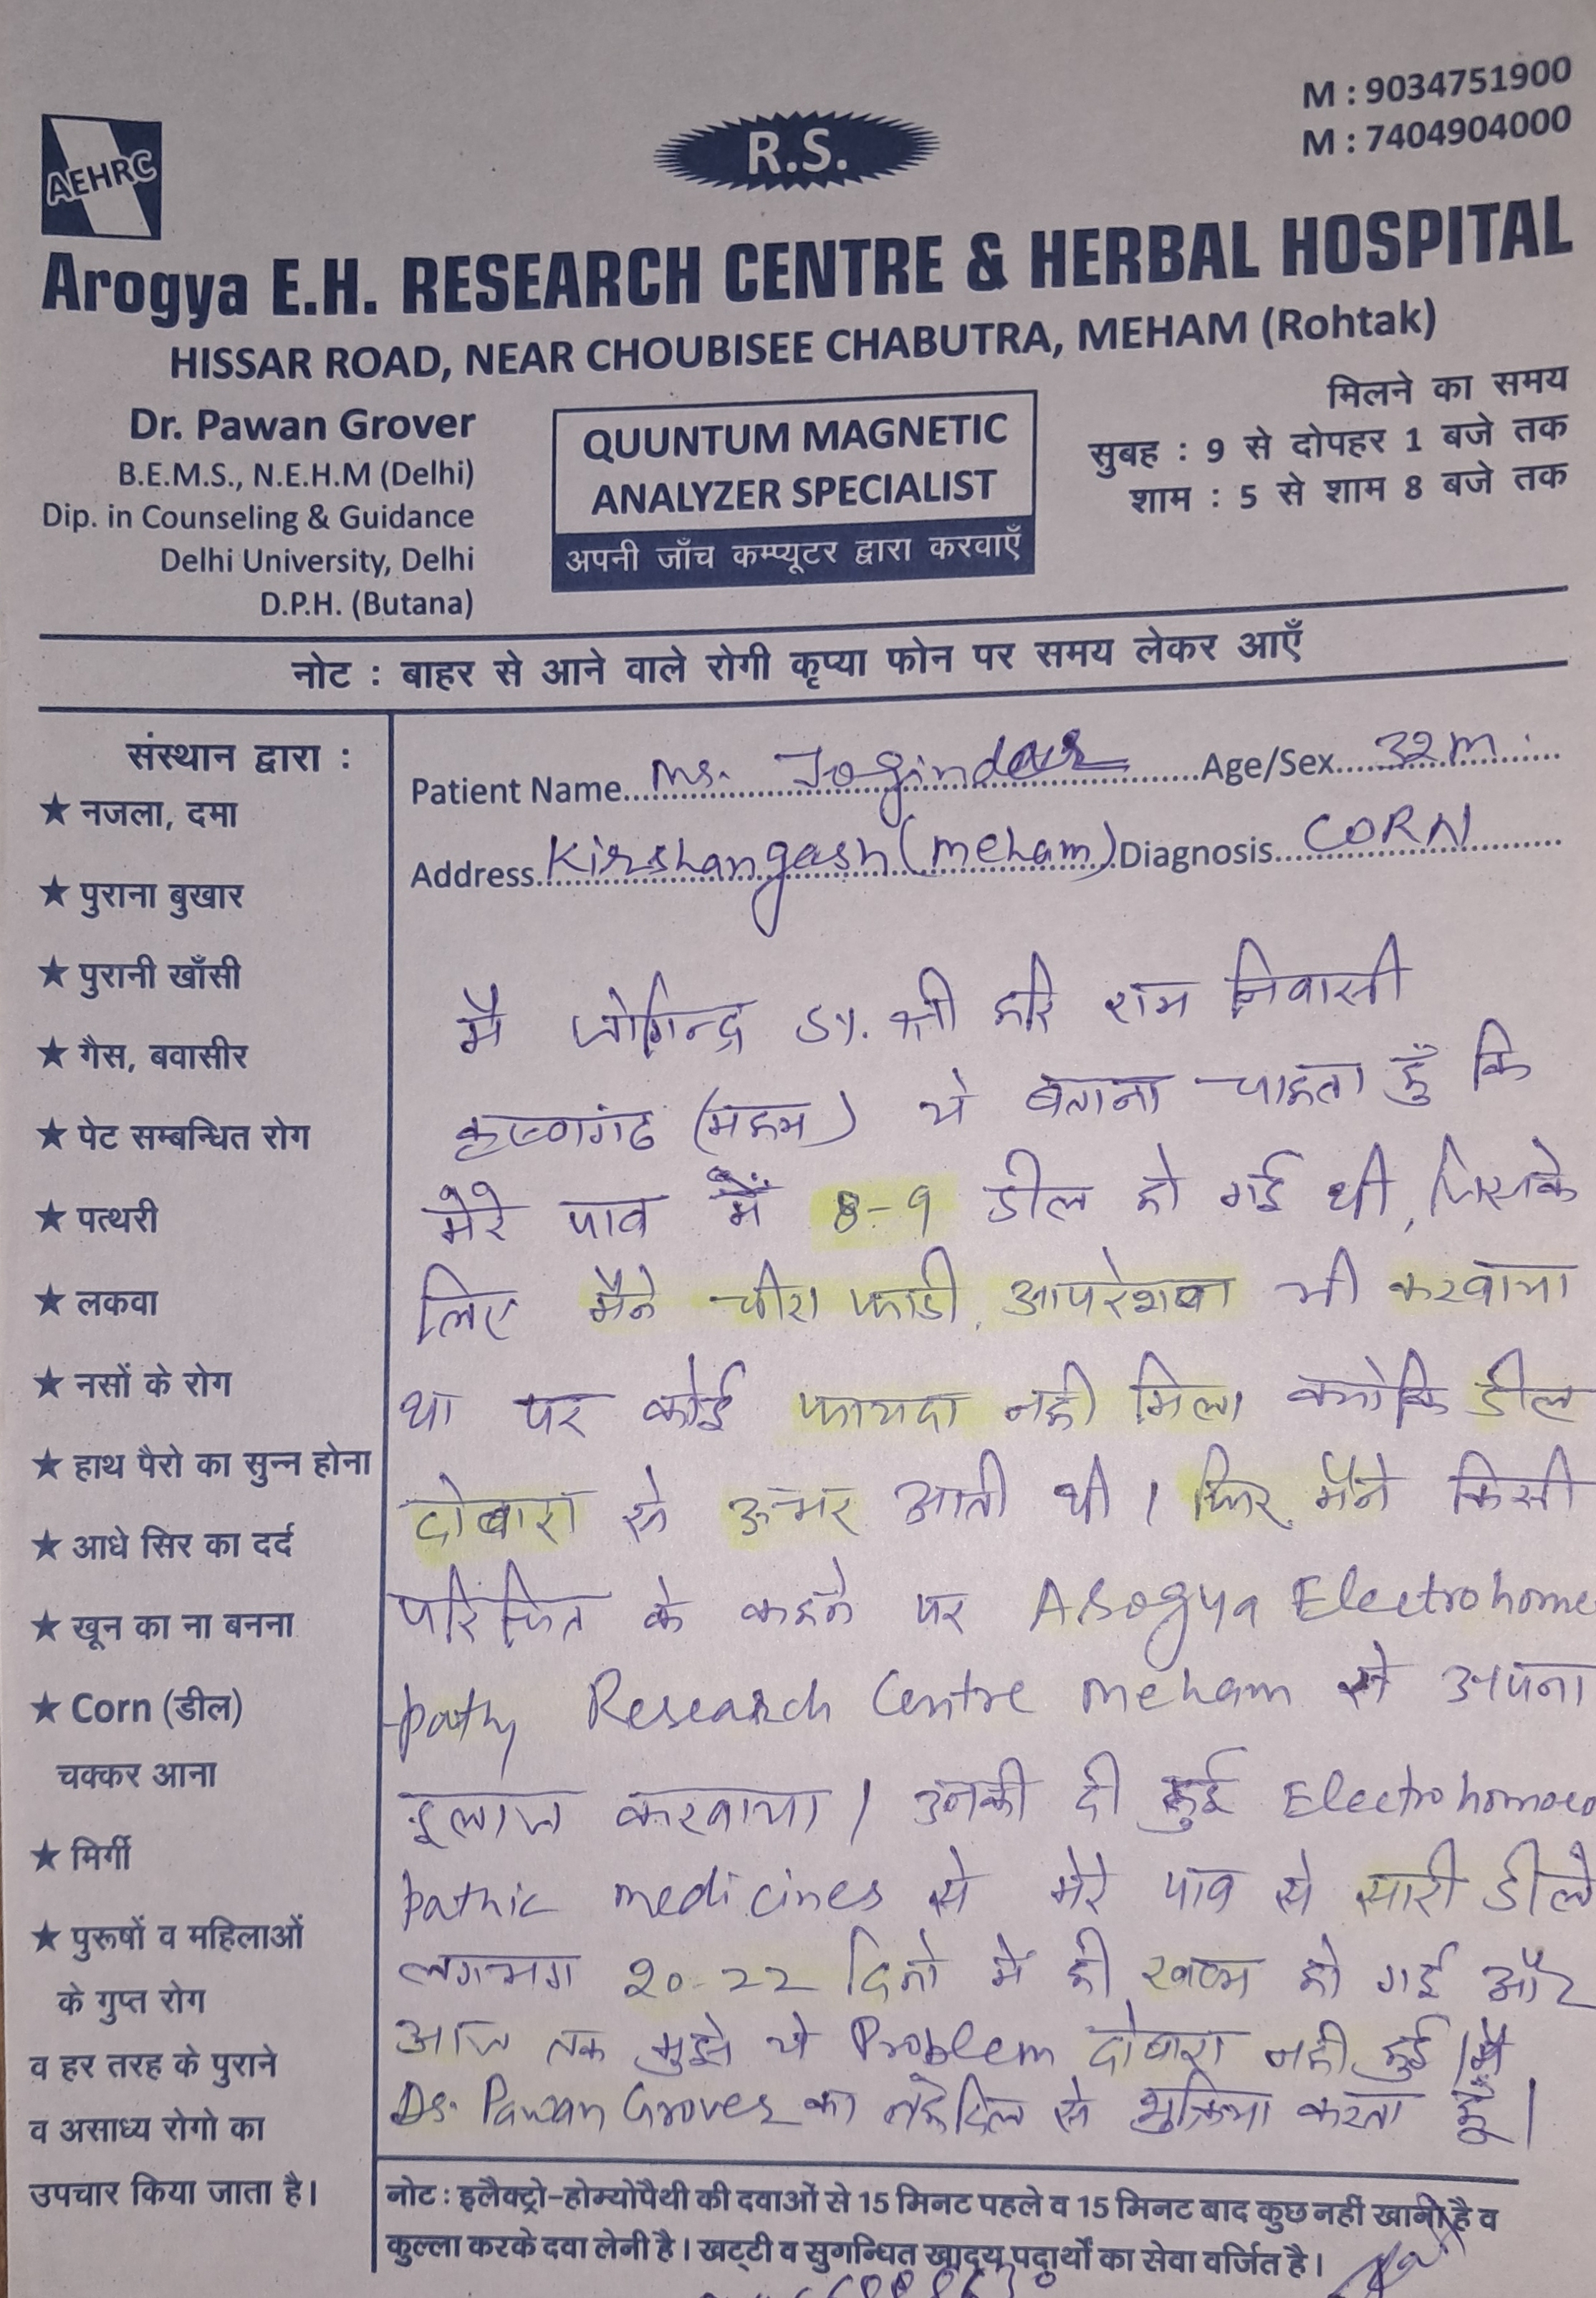 M : 9034751900
M : 7404904000
AEHRC
R.S.
Arogya E.H. RESEARCH CENTRE & HERBAL HOSPITAL
HISSAR ROAD, NEAR CHOUBISEE CHABUTRA, MEHAM (Rohtak)
Dr. Pawan Grover
B.E.M.S., N.E.H.M (Delhi)
Dip. in Counseling & Guidance
Delhi University, Delhi
D.P.H. (Butana)
QUUNTUM MAGNETIC
ANALYZER SPECIALIST
अपनी जाँच कम्प्यूटर द्वारा करवाएँ
मिलने का समय
सुबह : 9 से दोपहर 1 बजे तक
शाम : 5 से शाम 8 बजे तक
नोट : बाहर से आने वाले रोगी कृप्या फोन पर समय लेकर आएँ
संस्थान द्वारा :
★ नजला, दमा
★ पुराना बुखार
★ पुरानी खाँसी
★ गैस, बवासीर
★ पेट सम्बन्धित रोग
★ पत्थरी
★ लकवा
★ नसों के रोग
★ हाथ पैरो का सुन्न होना
★ आधे सिर का दर्द
★ खून का ना बनना
★ Corn (डील)
चक्कर आना
★ मिर्गी
★ पुरूषों व महिलाओं
के गुप्त रोग
व हर तरह के पुराने
व असाध्य रोगो का
उपचार किया जाता है।
Patient Name Mr. Joginder Age/Sex 32 M.
Address Kirshangarh (Meham) Diagnosis CORN
मै जोगिन्द्र S/. श्री हरि राम निवासी
कृष्णगंढ (महम) ये बताना चाहता हूँ कि
मेरे पाव में 8-9 डील हो गई थी, जिसके
लिए मैने चीरा फाडी, आपरेशन भी करवाया
था पर कोई फायदा नही मिला क्योकि डील
दोबारा से ऊभर आती थी। फिर मैने किसी
परिचित के कहने पर Arogya Electrohomeo
pathy Research Centre Meham से अपना
इलाज करवाया। उनकी दी हुई Electrohomoeo
pathic medicines से मेरे पाव से सारी डीले
लगभग 20-22 दिनो में ही खत्म हो गई और
आज तक मुझे ये Problem दोबारा नही हुई। मै
Dr. Pawan Grover का तहेदिल से शुक्रिया करता हूँ।
नोट : इलैक्ट्रो-होम्योपैथी की दवाओं से 15 मिनट पहले व 15 मिनट बाद कुछ नहीं खानी है व
कुल्ला करके दवा लेनी है। खट्टी व सुगन्धित खाद्य पदार्थों का सेवा वर्जित है।